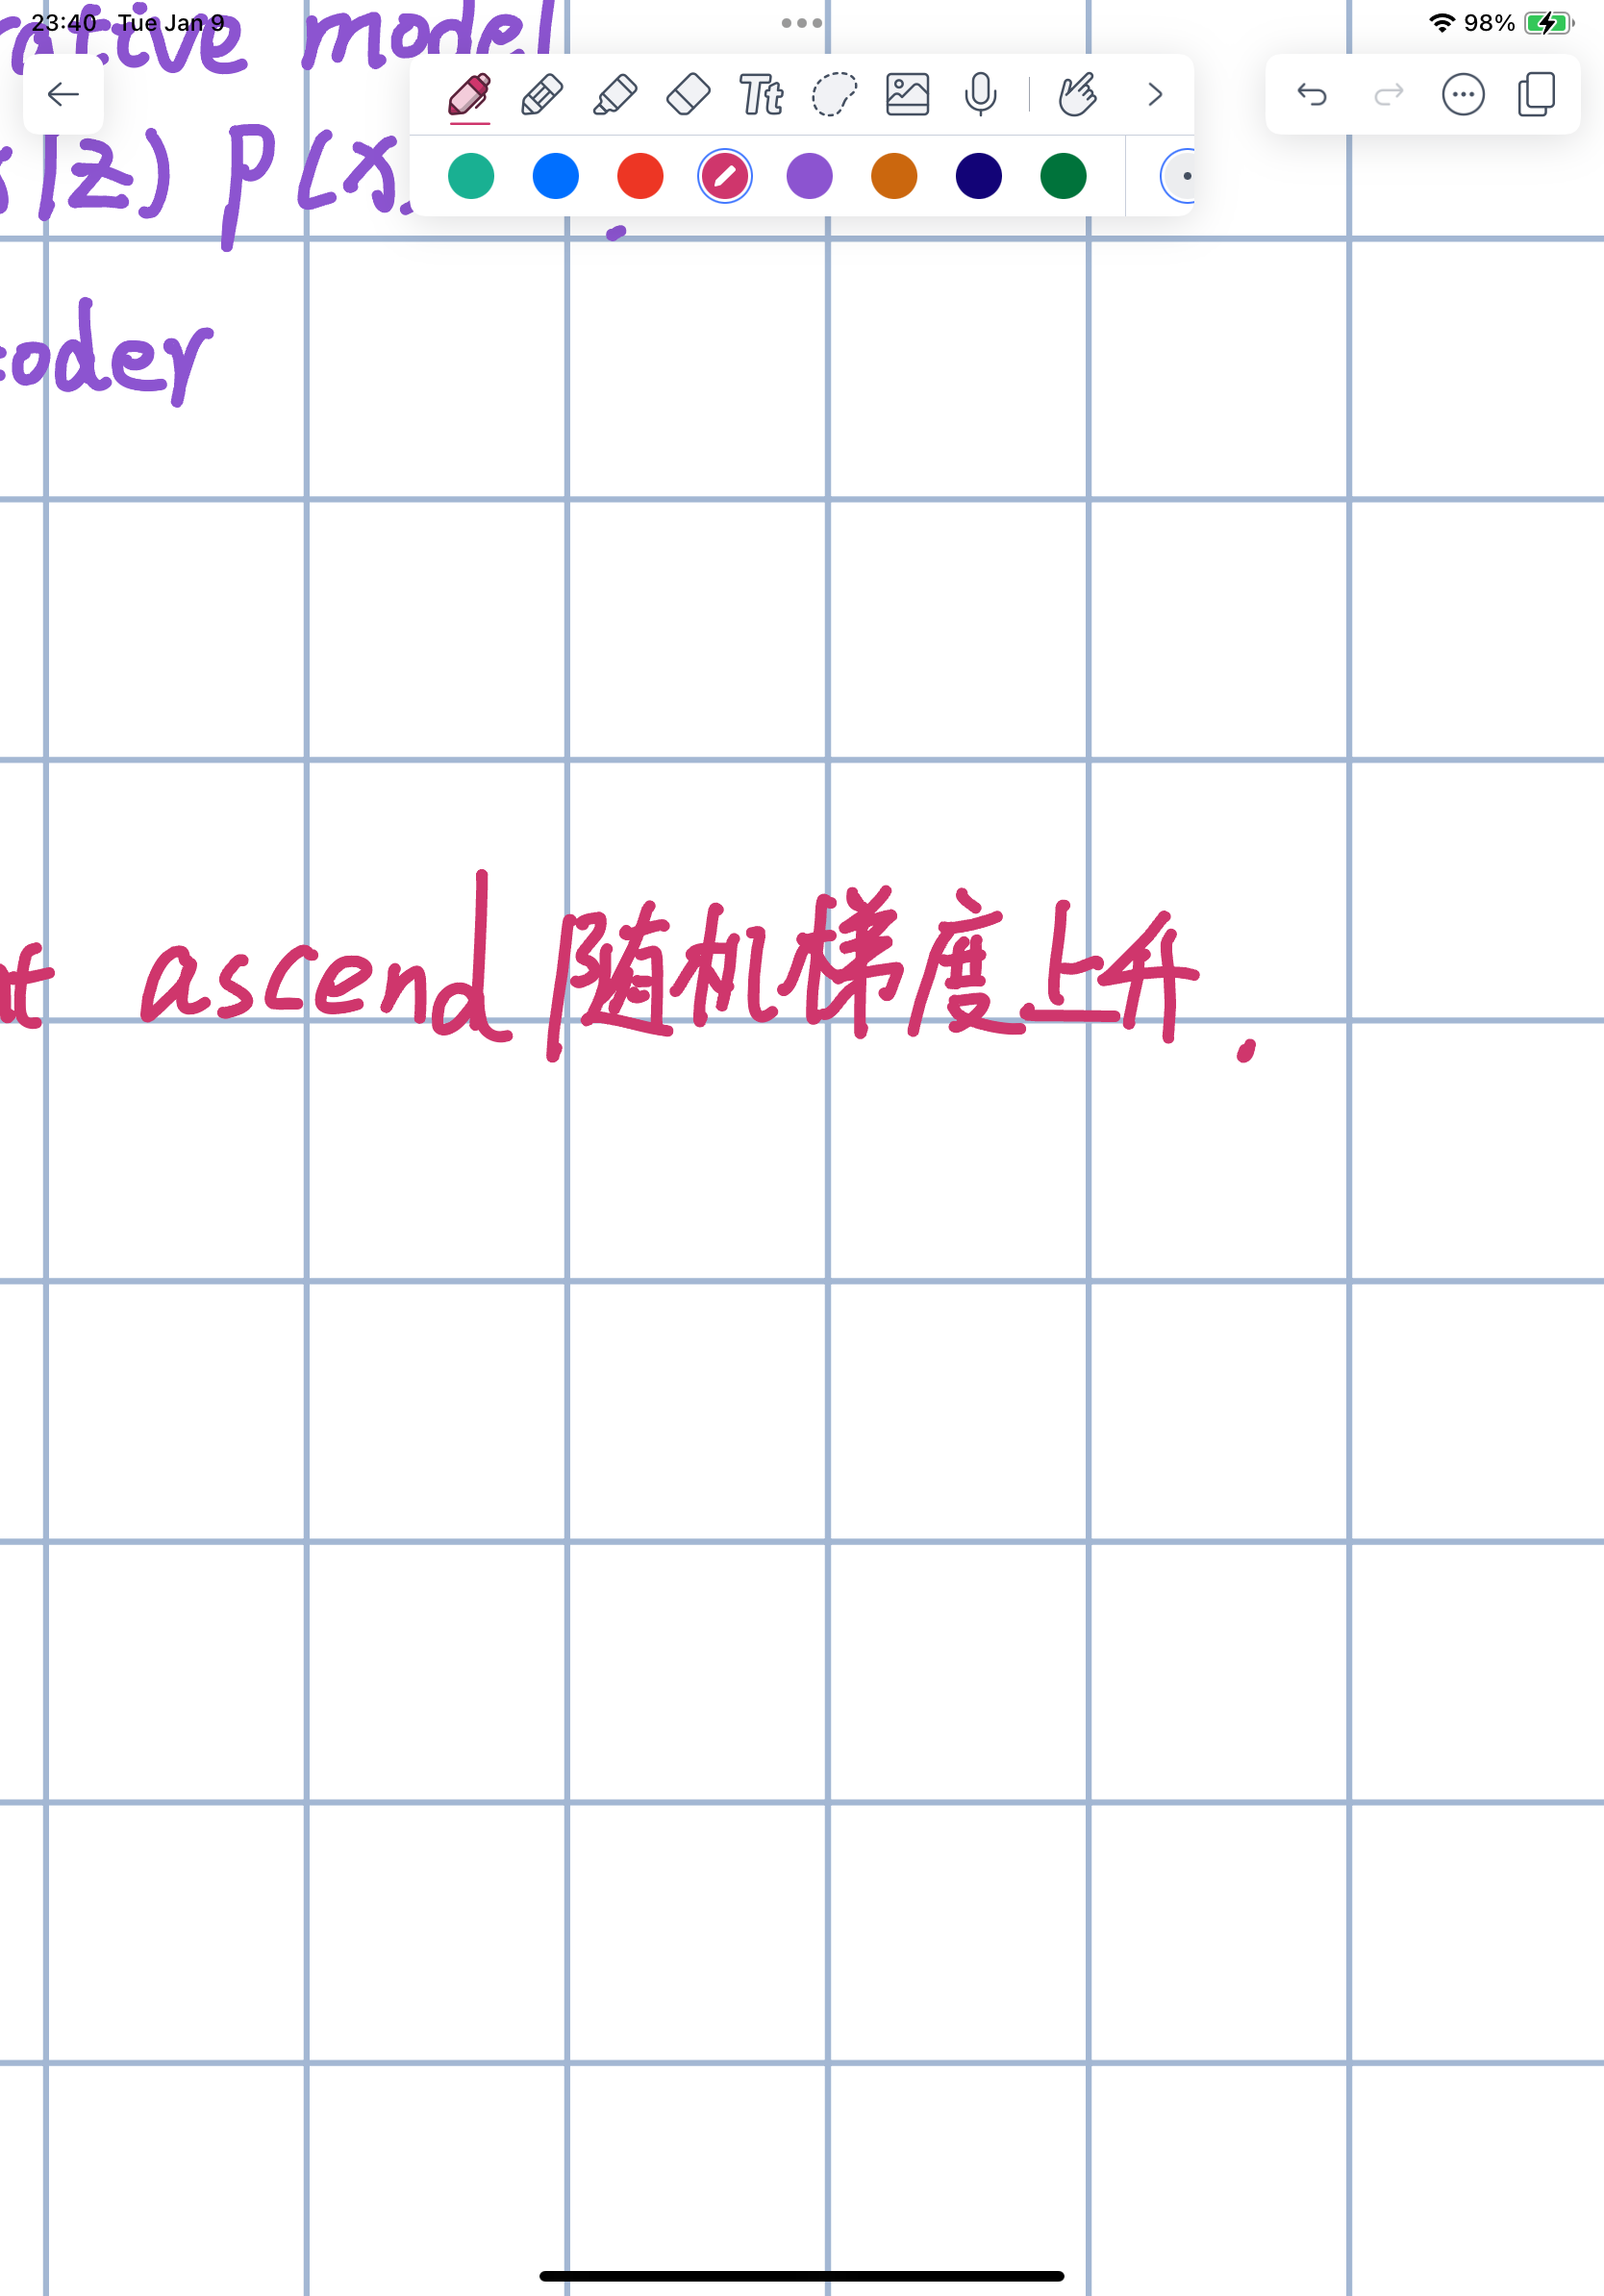 23:40 Tue Jan 9 98%
rative model
Tt
x|z) P(x
coder
nt ascend 随机梯度上升.